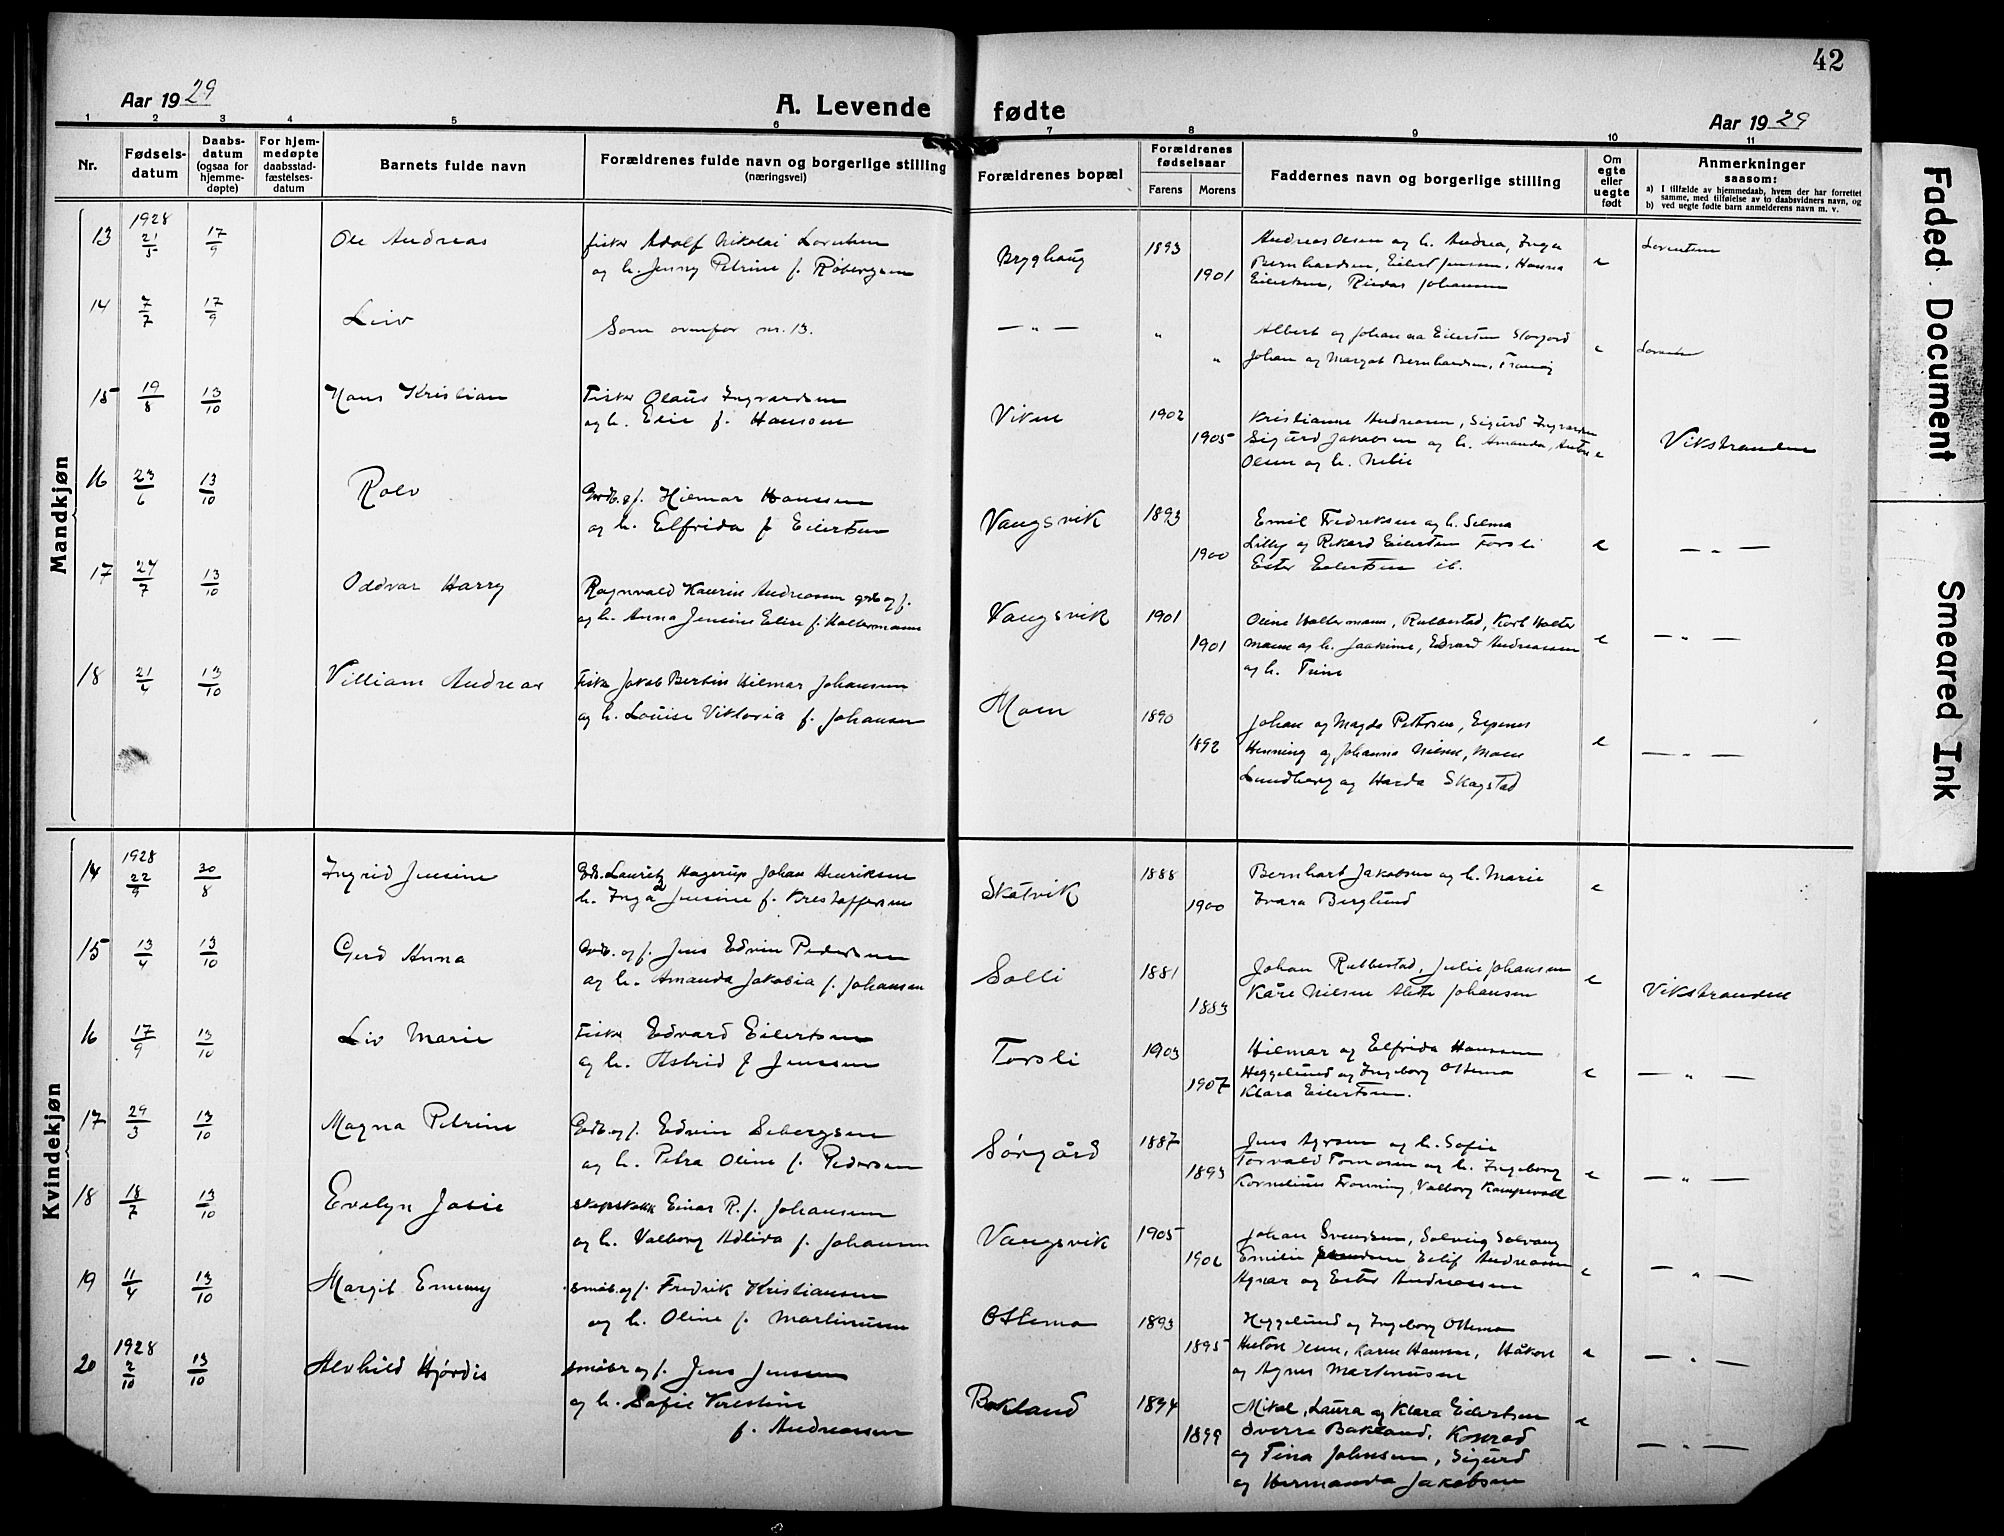 42
Aar 1929
A. Levende fødte
Aar 1929
1 2 3 4 5 6 7 8 9 10 11
Nr.
Fødsels-
datum
Daabs-
datum
(ogsaa for
hjemme-
døpte)
For hjem-
medøpte
daabsstad-
fæstelses-
datum
Barnets fulde navn
Forældrenes fulde navn og borgerlige stilling
(næringsvei)
Forældrenes bopæl
Forældrenes
fødselsaar
Farens Morens
Faddernes navn og borgerlige stilling
Om
egte
eller
uegte
født
Anmerkninger
saasom:
a) I tilfælde av hjemmedaab, hvem der har forrettet
samme, med tilføielse av to daabsvidners navn, og
b) ved uegte fødte barn anmelderens navn m. v.
Mandkjøn
1928
13 21/5 17/9 Ole Andreas
fisker Adolf Nikolai Lorentsen
og h. Jenny Petrine f. Røbergsen
Bryghaug 1893 1901
Andreas Olsen og h. Andrea, Inga
Bernhardsen, Eilert Jenssen, Hanna
Eilertsen, Reidar Johansen
e
14 7/7 17/9 Leiv
Som ovenfor nr. 13.
— " — " "
Albert og Johanna Eilertsen
Johan og Margot Bernhardsen, Tranøy
e
15 19/8 13/10 Hans Kristian
Fisker Olaus Ingvardsen
og h. Elie f. Hansen
Viken 1902 1905
Kristianne Andreasen, Sigurd Ingvardsen
Sigurd Jakobsen og h. Amanda, Anton
Olsen og h. Nelie
e Vikstranden
16 23/6 13/10 Rolv
Grdb. og f. Hilmar Hanssen
og h. Elfrida f Eilertsen
Vangsvik 1893 1900
Emil Fredriksen og h. Selma
Lilly og Rikard Eilertsen Torsli
Ester Eilertsen ib.
e — " —
17 24/7 13/10 Oddvar Harry
Ragnvald Kaurin Andreassen grdb og f.
og h. Anna Jensine Elise f. Haltermann
Vangsvik 1901 1901
Oline Haltermann, Rubbestad, Karl Halter
mann og h. Joakime, Edvard Andreassen
og h. Trine
e — " —
18 21/4 13/10 Villiam Andreas
Fisker Jakob Bertin Hilmar Johansen
og h. Louise Viktoria f. Johansen
Moen 1890 1892
Johan og Magda Pettersen, Espenes
Henning og Johanna Nilsen, Moen
Lundberg og Harda Skogstad
e — " —
Kvindekjøn
1928
14 22/9 30/8 Ingrid Jensine
Grdb. Lauritz Hagerup Johan Henriksen
h. Inga Jensine f. Kristoffersen
Skatvik 1888 1900
Bernhart Jakobsen og h. Marie
Ivara Berglund
e
15 13/4 13/10 Gerd Anna
Grdb. og f. Jens Edvin Pedersen
og h. Amanda Jakobia f. Johansen
Solli 1881 1883
Johan Rubbestad, Julie Johansen
Kåre Nilsen Alette Johansen
e Vikstranden
16 17/9 13/10 Liv Marie
Fisker Edvard Eilertsen
og h. Astrid f Jenssen
Torsli 1903 1907
Hilmar og Elfrida Hanssen
Heggelund og Ingeborg Ottemo
Klara Eilertsen.
e — " —
17 29/3 13/10 Magna Petrine
Grdb. og f. Edvin Sebergsen
og h. Petra Oline f. Pedersen
Sørgård 1887 1893
Jens Agersen og h. Sofie
Torvald Tomasen og h. Ingeborg
Kornelius Tronning, Valborg Kampevoll
e — " —
18 18/7 13/10 Evelyn Josie
Einar R. f. Johansen
og h. Valborg Adliva f. Johansen
Vangsvik 1905 1902
Johan Svendsen, Solveig Solvang
Emilie Svendsen Eilif Andreassen
Agnar og Ester Andreassen
e — " —
19 11/4 13/10 Margit Emmy
småb. og f. Fredrik Kristiansen
og h. Oline f. Martinusen
Ottemo 1893 1895
Heggelund og Ingeborg Ottemo
Anton Jenssen, Karen Hansen, Håkon
og Agnes Martinussen
e — " —
1928
20 2/10 13/10 Alvhild Hjørdis
småbr og f. Jens Jensen
og h. Sofie Kirestine
f. Andreassen
Bakland 1894 1899
Mikal, Laura og Klara Eilertsen
Sverre Bakland, Konrad
og Tina Johnsen, Sigurd
og Hermanda Jakobsen
e — " —
Faded Document
Smeared Ink